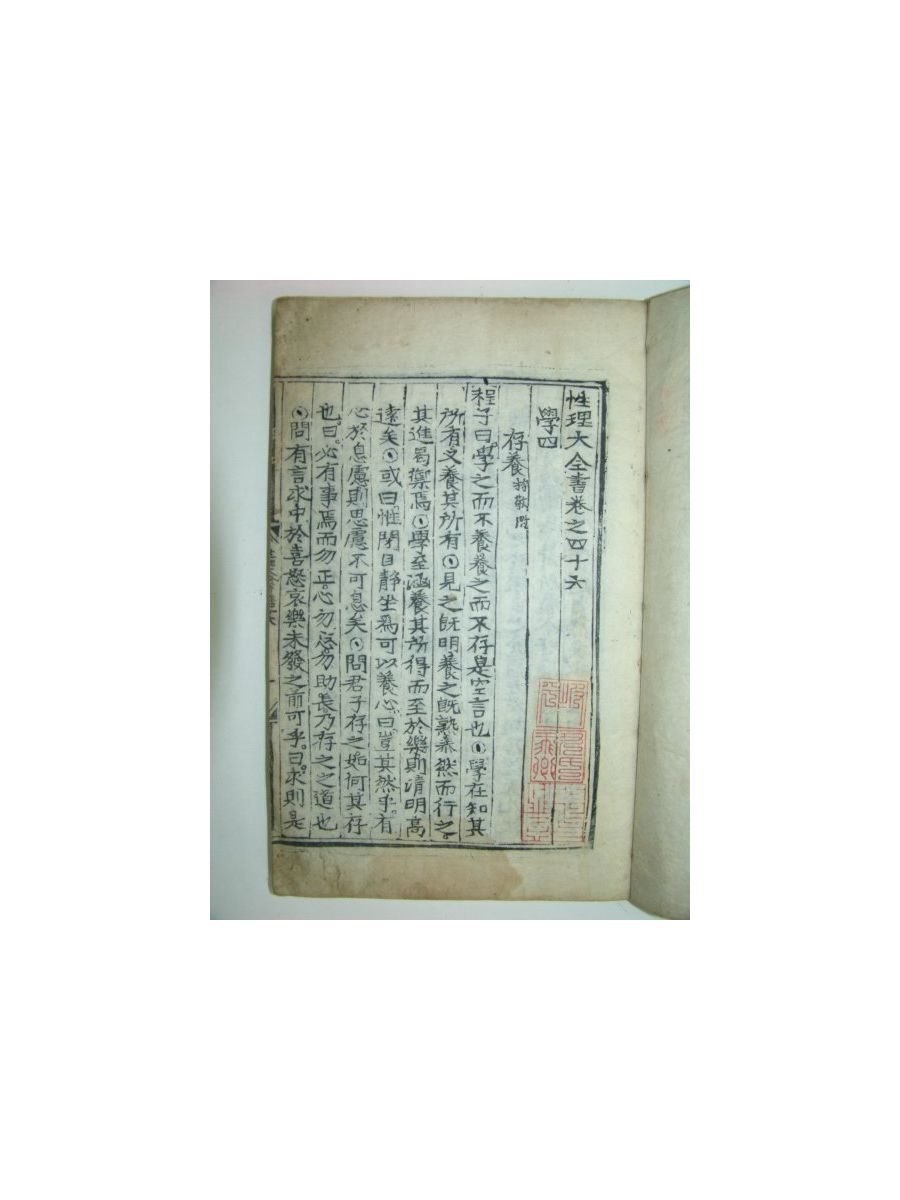 性理大全書卷之四十六
學四
存養持敬附
程子曰學之而不養養之而不存是空言也○學在知其
所有又養其所有○見之旣明養之旣熟泰然而行之
其進曷禦焉○學至涵養其所得而至於樂則淸明高
遠矣○或曰惟閉目靜坐爲可以養心曰豈其然乎有
心於息慮則思慮不可息矣○問君子存之如何其存
也曰必有事焉而勿正心勿忘勿助長乃存之之道也
○問有言求中於喜怒哀樂未發之前可乎曰求則是